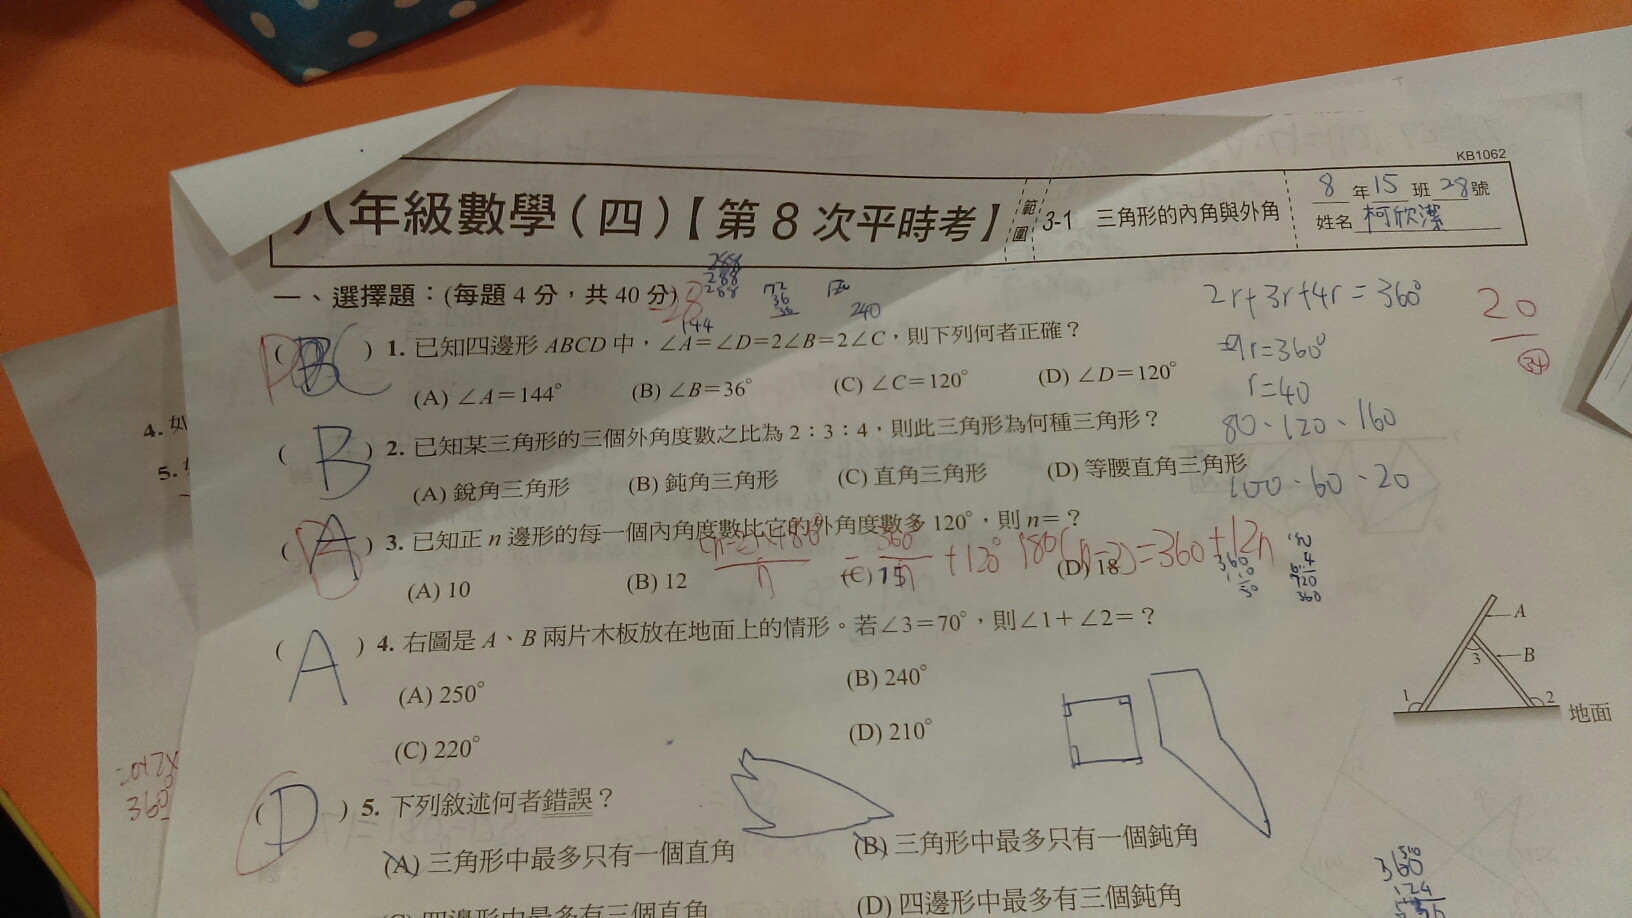 KB1062
八年級數學(四)【第8次平時考】 範圍 3-1 三角形的內角與外角
8年15班28號
姓名 柯欣潔
一、選擇題：(每題4分，共40分)
288
288
144
72
36
240
2r+3r+4r=360°
20
34
( ) 1. 已知四邊形ABCD中，∠A=∠D=2∠B=2∠C，則下列何者正確？
9r=360°
(A) ∠A=144° (B) ∠B=36° (C) ∠C=120° (D) ∠D=120°
r=40
80、120、160
( B ) 2. 已知某三角形的三個外角度數之比為2：3：4，則此三角形為何種三角形？
(A) 銳角三角形 (B) 鈍角三角形 (C) 直角三角形 (D) 等腰直角三角形
100、60、20
( A ) 3. 已知正n邊形的每一個內角度數比它的外角度數多120°，則n=？
(A) 10 (B) 12 (C) 15 (D) 18
( A ) 4. 右圖是A、B兩片木板放在地面上的情形。若∠3=70°，則∠1+∠2=？
(A) 250° (B) 240°
(C) 220° (D) 210°
A
B
3
1
2
地面
( D ) 5. 下列敘述何者錯誤？
(A) 三角形中最多只有一個直角 (B) 三角形中最多只有一個鈍角
(C) 四邊形中最多有三個直角 (D) 四邊形中最多有三個鈍角
4. 如
5.
360°